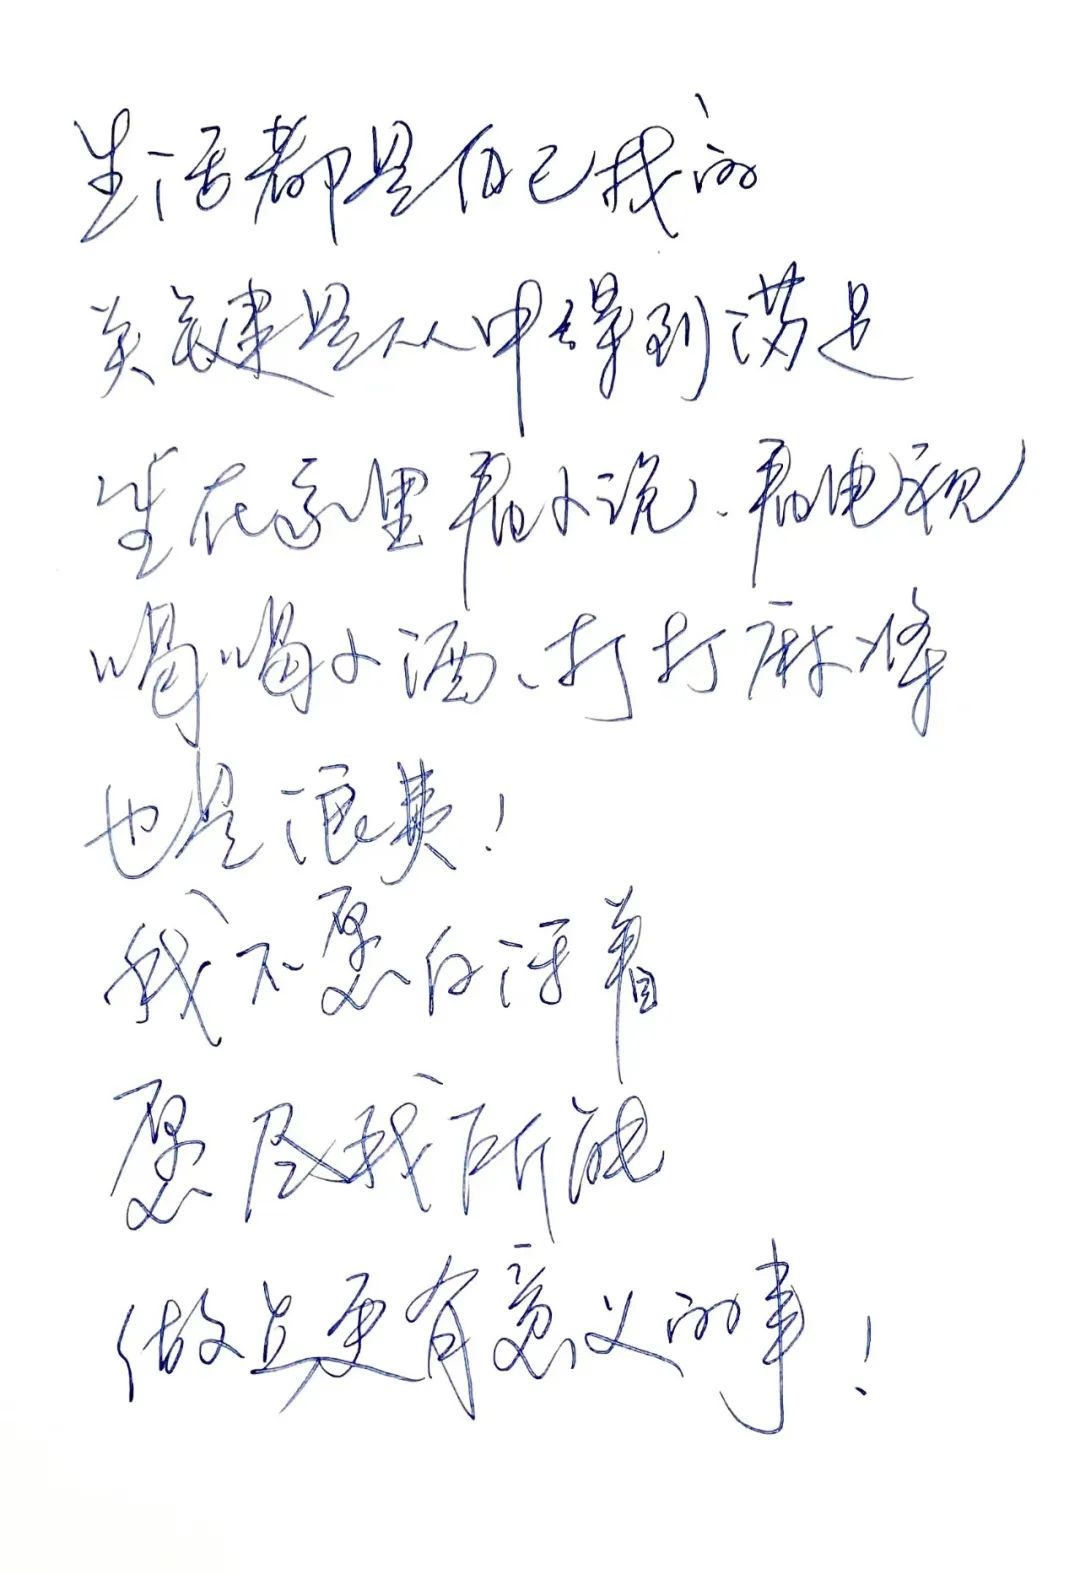 生活都是自己找的
关键是从中得到满足
坐在家里看小说、看电视
喝喝小酒、打打麻将
也是浪费！
我不愿白活着
愿尽我所能
做点更有意义的事！